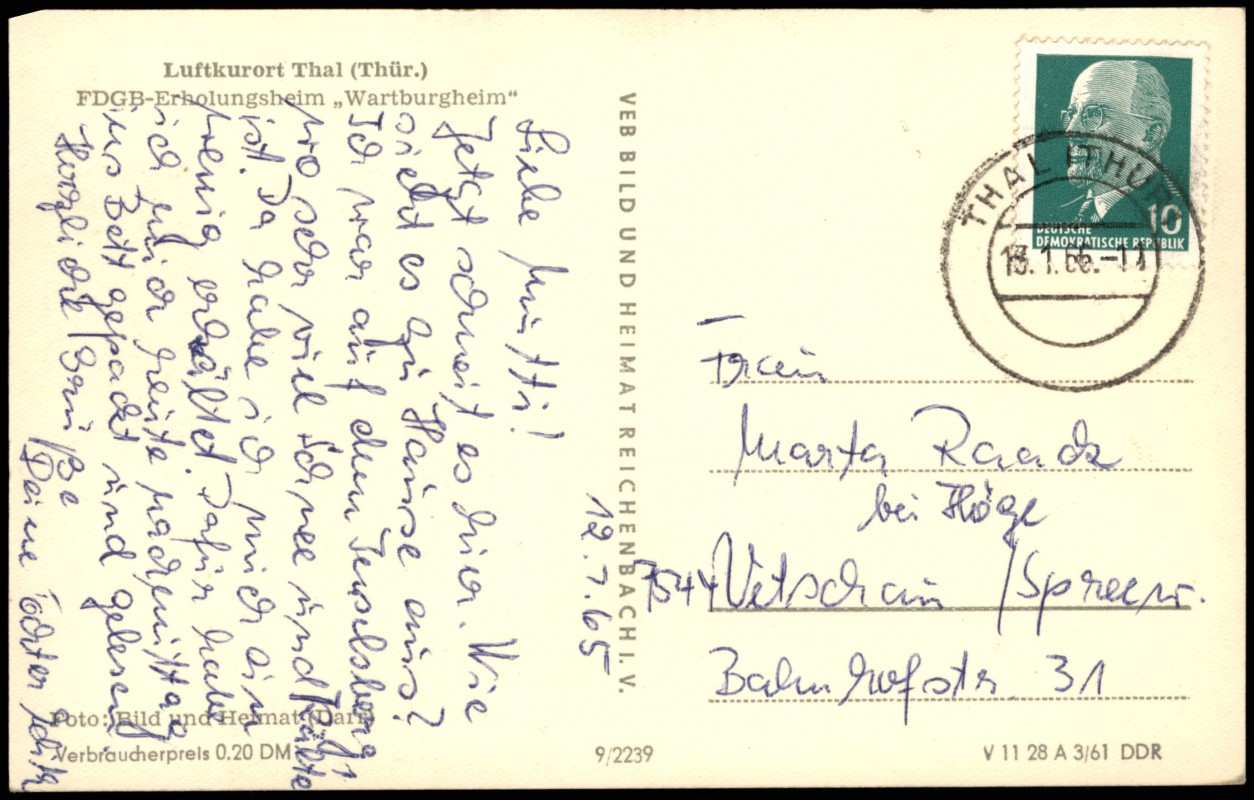 Luftkurort Thal (Thür.)
FDGB-Erholungsheim „Wartburgheim“
12.1.65
Liebe Mutti!
Jetzt schneit es hier. Wie
sieht es zu Hause aus?
Ich war auf dem Inselsberg,
wo sehr viel Schnee und Kälte
ist. Da habe ich mich ein
wenig erkältet. Dafür habe
ich mich heute nachmittag
ins Bett gepackt und gelesen.
Herzliche Grüße
Deine Tochter Edith
Foto: Bild und Heimat (Darr)
Verbraucherpreis 0.20 DM
9/2239
V 11 28 A 3/61 DDR
VEB BILD UND HEIMAT REICHENBACH I. V.
DEUTSCHE
DEMOKRATISCHE REPUBLIK
10
THAL (THÜR)
13.1.66.-11
Frau
Marta Raack
bei Höge
7544 Vetschau /Spreew.
Bahnhofstr. 31